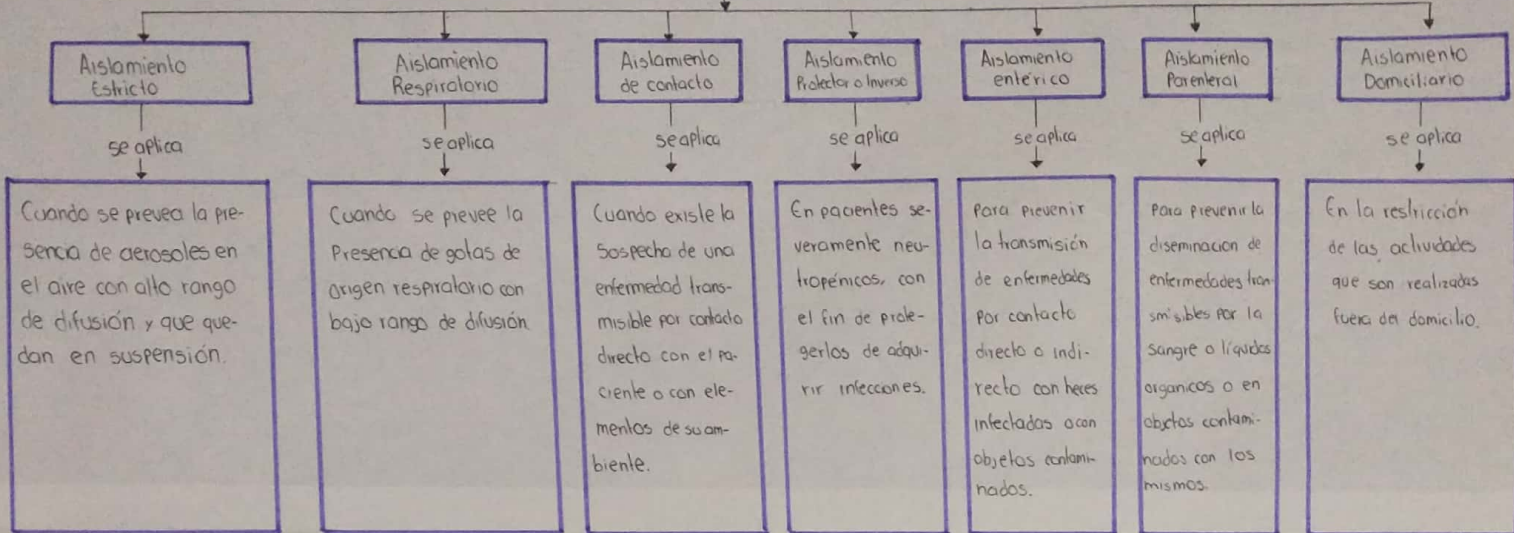 Aislamiento
Estricto
se aplica
Cuando se prevea la pre-
sencia de aerosoles en
el aire con alto rango
de difusión y que que-
dan en suspensión.
Aislamiento
Respiratorio
se aplica
Cuando se prevee la
Presencia de gotas de
origen respiratorio con
bajo rango de difusión
Aislamiento
de contacto
se aplica
Cuando existe la
Sospecha de una
enfermedad trans-
misible por contacto
directo con el pa-
ciente o con ele-
mentos de su am-
biente.
Aislamiento
Protector o Inverso
se aplica
En pacientes se-
veramente neu-
tropénicos, con
el fin de prote-
gerlos de adqui-
rir infecciones.
Aislamiento
entérico
se aplica
Para prevenir
la transmisión
de enfermedades
por contacto
directo o indi-
recto con heces
infectadas o con
objetos contami-
nados.
Aislamiento
Parenteral
se aplica
Para prevenir la
diseminacion de
enfermedades tran-
smisibles por la
sangre o líquidos
organicos o en
objetos contami-
nados con los
mismos.
Aislamiento
Domiciliario
se aplica
En la restricción
de las actividades
que son realizadas
fuera del domicilio.